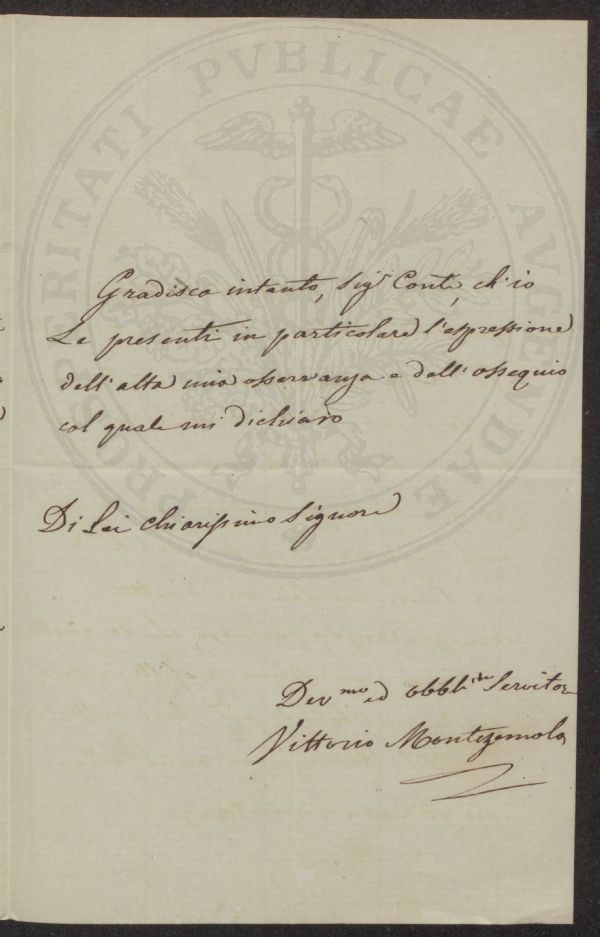 PROSPERITATI PVBLICAE AVGENDAE
Gradisca intanto, Sigr Conte, ch'io
Le presenti in particolare l'espressione
dell'alta mia osservanza e dell'ossequio
col quale mi dichiaro
Di Lei Chiarissimo Signore
Devmo ed obbl Servitore
Vittorio Montezemolo